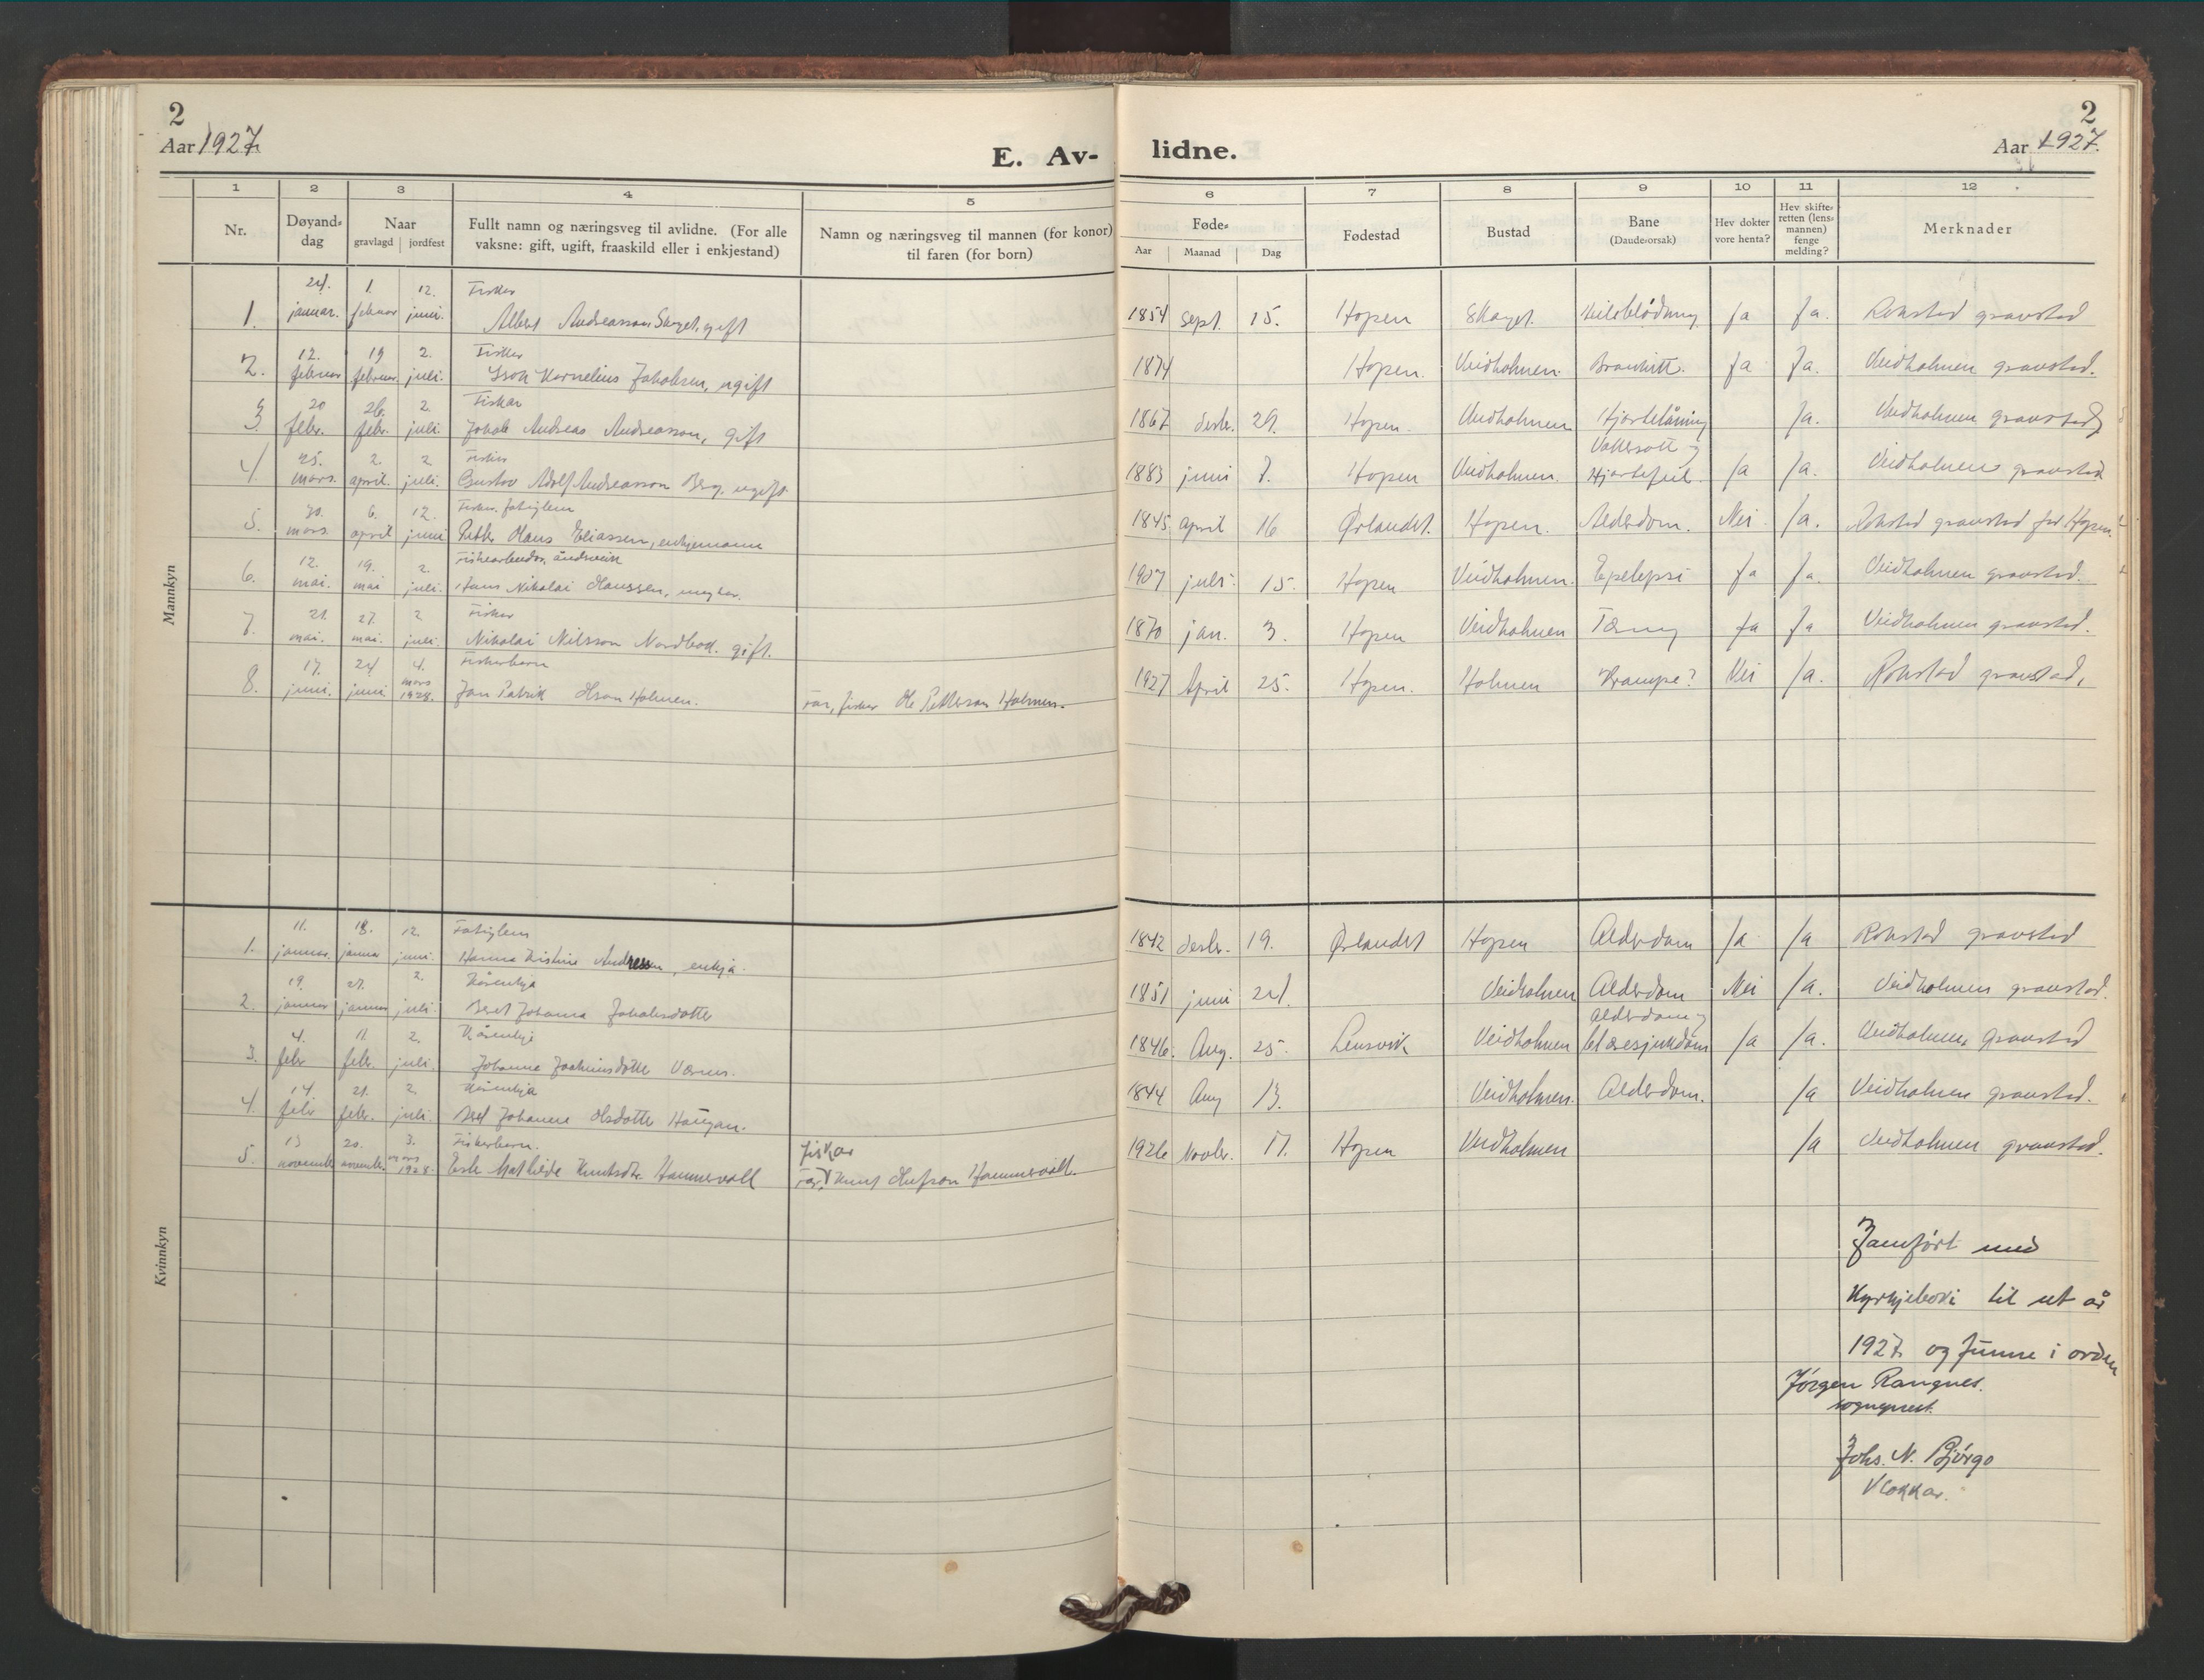 2
Aar 1927.
E. Av-
lidne.
2
Aar 1927.
1 2 3 4 5 6 7 8 9 10 11 12
Nr.
Døyand-
dag
Naar
gravlagd jordfest
Fullt namn og næringsveg til avlidne. (For alle
vaksne: gift, ugift, fraaskild eller i enkjestand)
Namn og næringsveg til mannen (for konor)
til faren (for born)
Føde-
Aar Maanad Dag
Fødestad
Bustad
Bane
(Daude-orsak)
Hev dokter
vore henta?
Hev skifte-
retten (lens-
mannen)
fenge
melding?
Merknader
Mannkyn
24. 1. 12. Fisker
1. januar. februar juni. Albert Andreasson Skaget, gift 1854 sept. 15. Hopen Skaget. Ja Ja. Rokstad gravstad
12. 19 2. Fisker
2. februar februar juli. Kornelius Jakobsen, ugift 1874 Hopen. Veidholmen. Ja Ja. Veidholmen gravstad.
20 26. 2. Fiskar
3. febr. febr. juli. Jakob Andreas Andreasson, gift 1867 desbr. 29. Hopen. Veidholmen Hjartelåming Ja. Veidholmen gravstad
25. 2. 2 Fisker Vattersott og
4. mars. april. juli. Gustav Adolf Andreasson Berg, ugift. 1883 juni 7. Hopen Veidholmen. Hjartefeil. Ja Ja. Veidholmen gravstad
30. 6. 12. Fisker, fatiglem
5. mars. april juni Petter Hans Eliassen, enkjemann 1845. april 16 Ørlandet. Hopen. Alderdom. Nei. Ja. Rokstad gravstad for Hopen.
12. 19. 2. Fiskearbeidar, åndsveik
6. mai. mai juli. Hans Nikolai Hanssen, ungkar. 1907 juli. 15. Hopen Veidholmen. Epelepsi Ja Ja. Veidholmen gravstad.
21. 27. 2 Fisker
7. mai. mai. juli. Nikolai Nilsson Nordbok. gift. 1870 jan. 3. Hopen Veidholmen Tæring Ja Ja Veidholmen gravstad.
17. 24 4. Fiskerbarn
8. juni. juni mars 1928. Jan Patrik Olson Holmen. Far, fisker Ole Petterson Holmen. 1927 April 25. Hopen. Holmen Krampe? Nei Ja. Rokstad gravstad.
Kvinnkyn
11. 18. 12. Fatiglem
1. januar. januar juni. Hanna Kristine Andressen, enkja. 1842 desbr. 19. Ørlandet Hopen Alderdom Ja Ja Rokstad gravstad
19. 27. 2. Kårenkja
2. januar januar juli. Beret Johanna Jakobsdotter 1851 juni 24. Veidholmen Alderdom Nei Ja. Veidholmen gravstad.
4. 11. 2. Kårenkje Alderdom og
3. febr febr. juli. Johanna Joakimsdotter Værnes. 1846. Aug. 25. Lensvik Veidholmen blæresjukdom Ja Ja. Veidholmen gravstad
14 21. 2 Kårenkja
4. febr febr. juli. Beret Johanna Olsdotter Haugan. 1844 Aug 13. Veidholmen. Alderdom. Ja Veidholmen gravstad.
13 20. 3. Fiskerbarn. fiskar
5. november november mars 1928. Mathilde Knutsdtr. Hammervoll Far, Knut Olufson Hammervoll. 1926 Novbr. 17. Hopen Veidholmen Ja Veidholmen gravstad.
Jamført med
Kyrkjeboki til ut år
1927 og funne i orden
Jørgen Rangnes.
sogneprest.
Johs. N. Bjørgo
Klokkar.